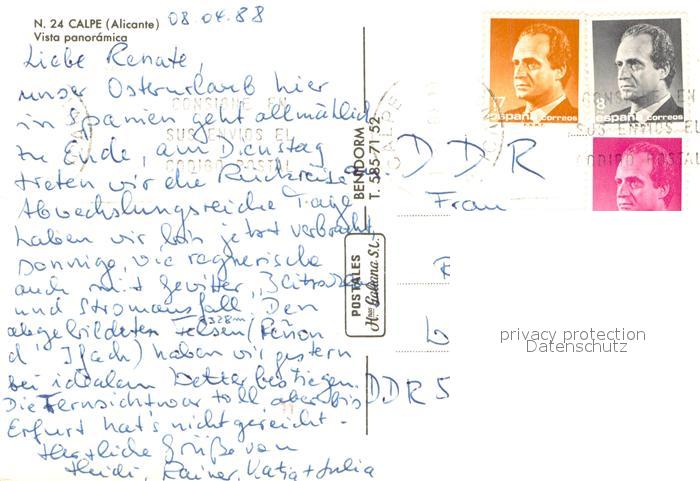 N. 24 CALPE (Alicante)
Vista panorámica
08.04.88
Liebe Renate,
unser Osterurlaub hier
in Spanien geht allmählich
zu Ende, am Dienstag
treten wir die Rückreise
Abwechslungsreiche Tage
haben wir bis jetzt verbracht,
sonnige, wie regnerische
auch mit Gewitter,
und Stromausfall. Den
328m
abgebildeten Felsen (Peñon
d' Ifach) haben wir gestern
bei idealem Wetter bestiegen.
Die Fernsicht war toll aber bis
Erfurt hat's nicht gereicht.
Herzliche Grüße von
Heidi, Rainer, Katja + Julia
BENIDORM
T. 585 71 52
POSTALES
Hnos Galiana S.L.
7
españa correos
8
españa correos
CALPE
CONSIGNE EN
SUS ENVIOS EL
CODIGO POSTAL
CONSIGNE EN
SUS ENVIOS EL
CODIGO POSTAL
DDR
Frau
DDR 5
privacy protection
Datenschutz